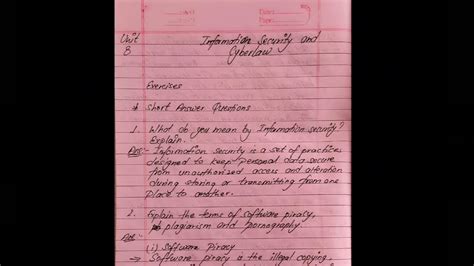 Date:
Page:
Unit
8
Information Security and
Cyberlaw
Exercises
* Short Answer Questions
1. What do you mean by Information security?
Explain.
Ans:- Information security is a set of practices
designed to keep personal data secure
from unauthorized access and alteration
during storing or transmitting from one
place to another.
2. Eplain the terms of software piracy,
plagiarism and pornography.
Ans:-
(i) Software Piracy
→ Software piracy is the illegal copying,